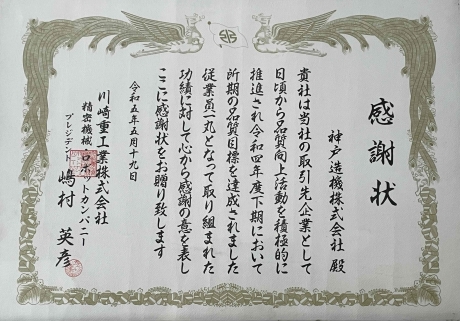 感謝状
神戸造機株式会社 殿
貴社は当社の取引先企業として
日頃から品質向上活動を積極的に
推進され令和四年度下期において
所期の品質目標を達成されました
従業員一丸となって取り組まれた
功績に対して心から感謝の意を表し
ここに感謝状をお贈り致します
令和五年五月十九日
川崎重工業株式会社
精密機械・ロボットカンパニー
プレジデント 嶋村 英彦